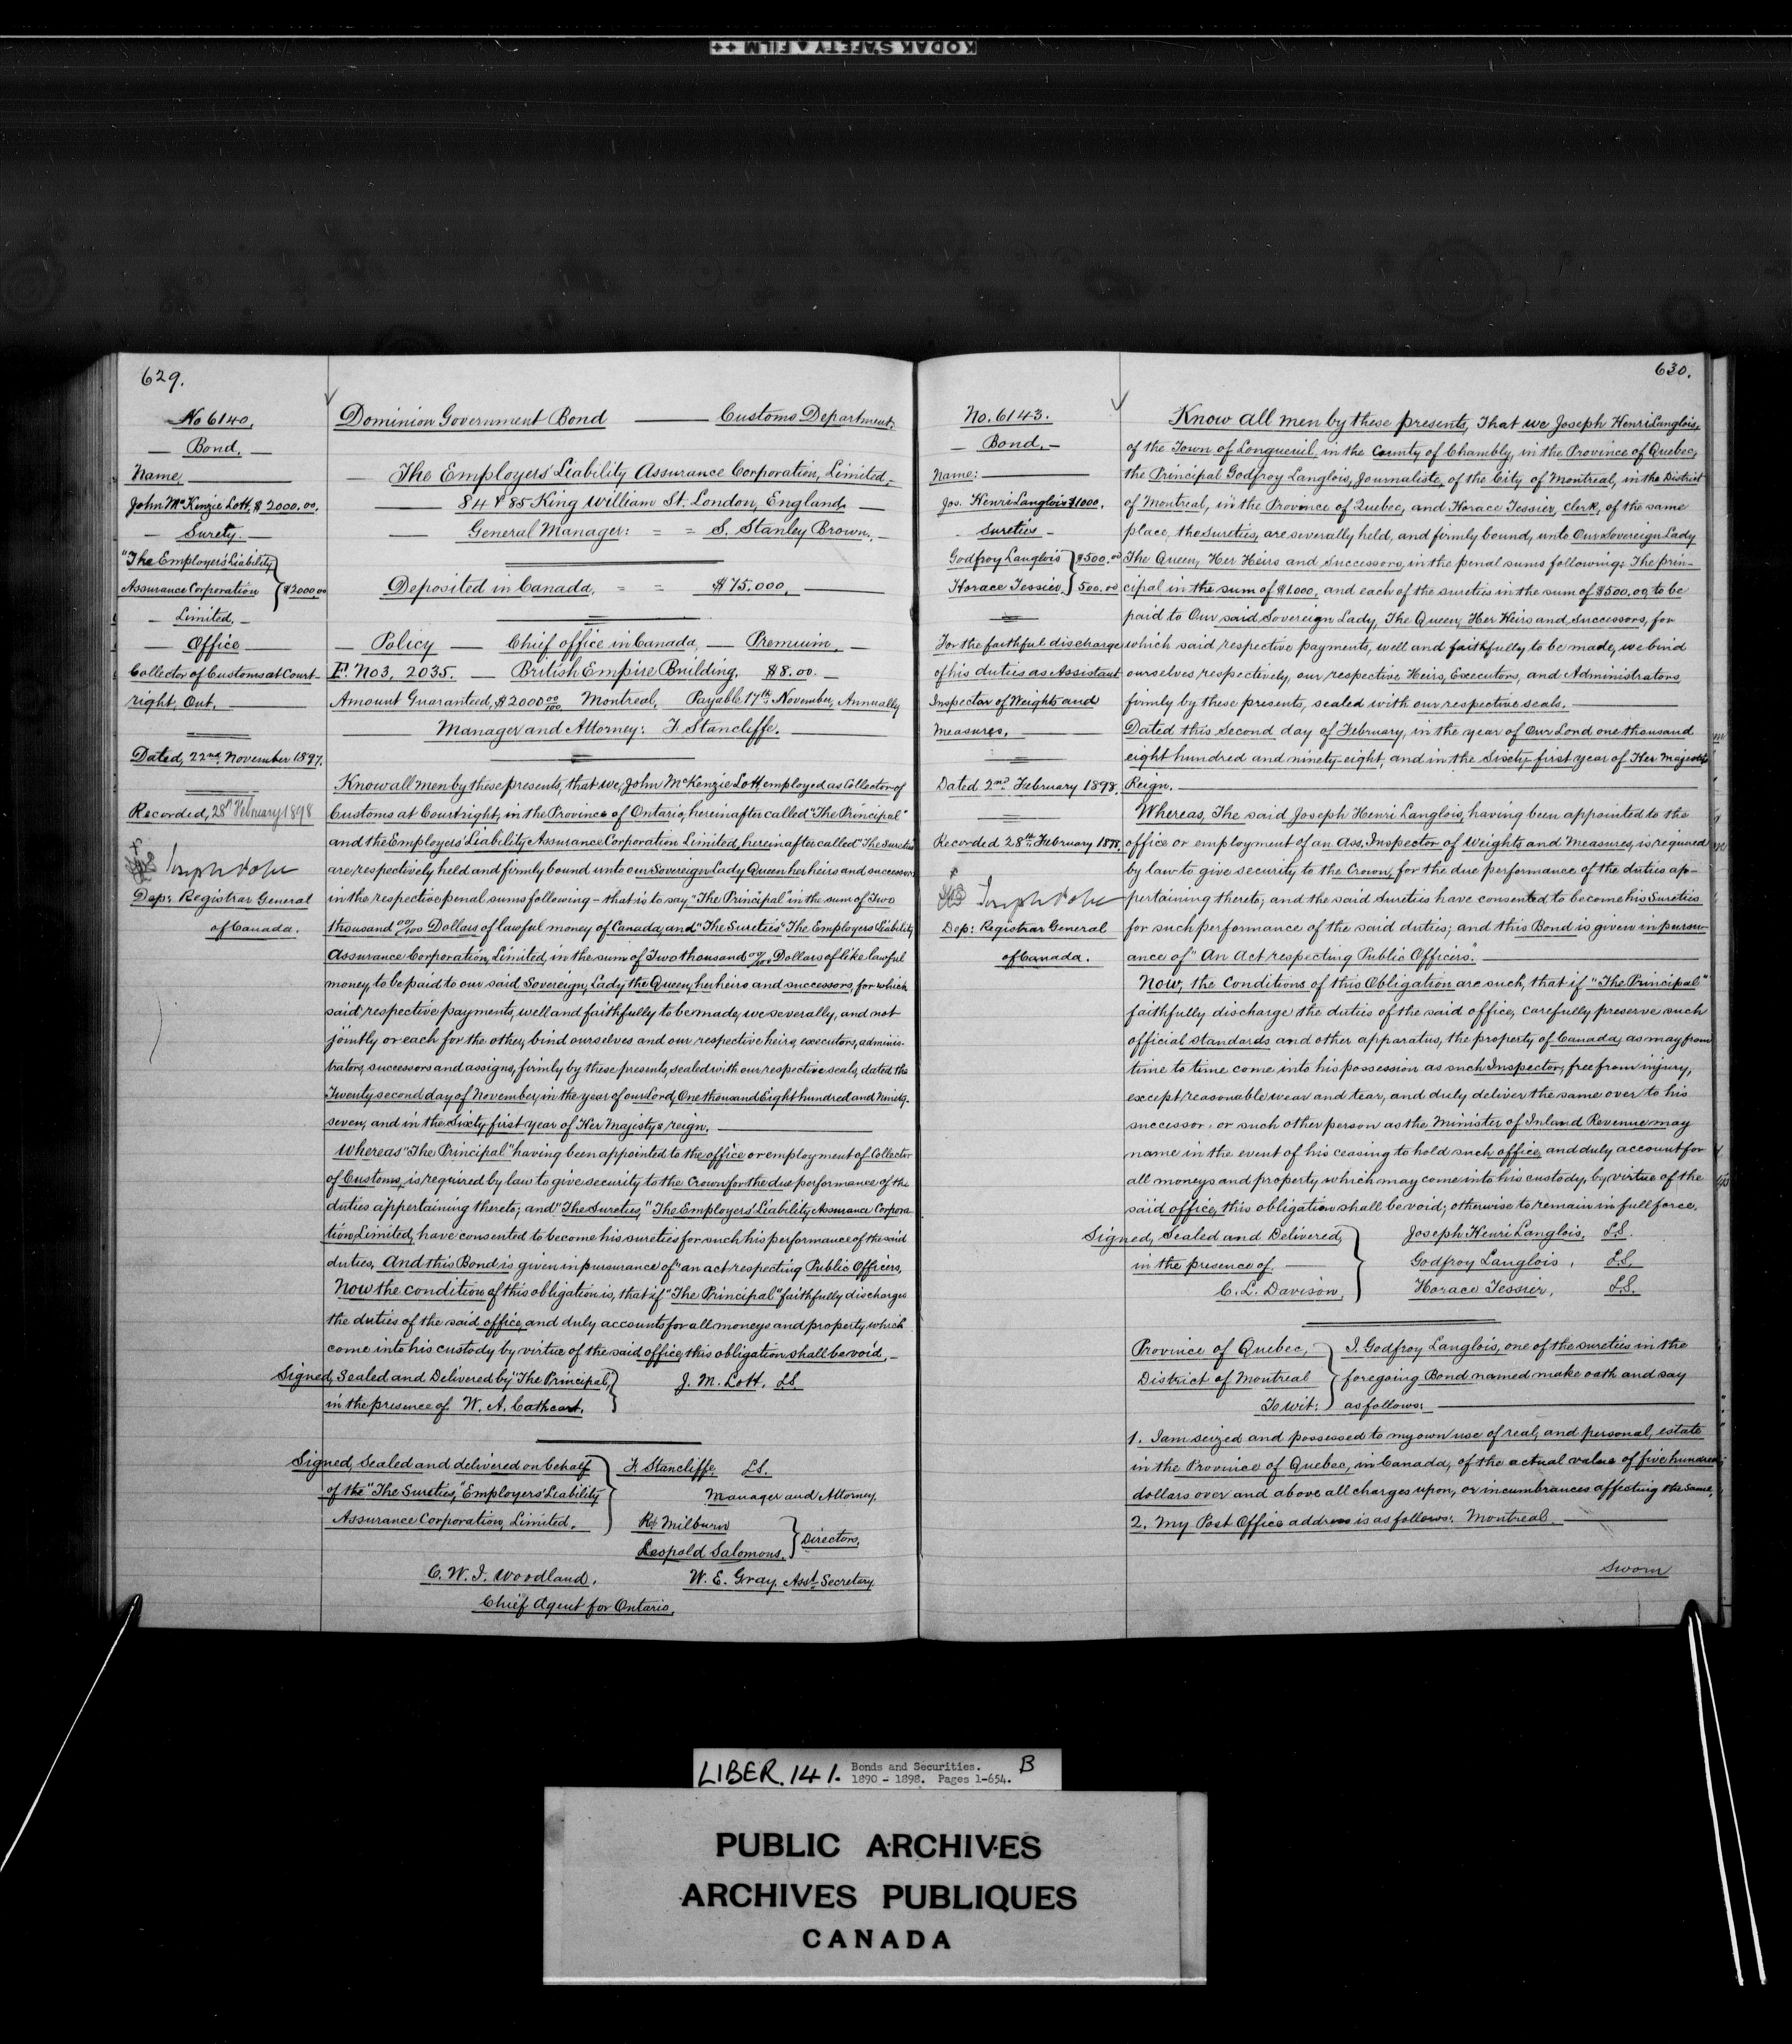 KODAK SAFETY FILM
629.
No 6140.
Bond.
Name
John McKenzie Lott, $2000.00.
Surety.
"The Employers' Liability
Assurance Corporation $2000.00
Limited.
Office
Collector of Customs at Court-
right, Ont.
Dated, 22nd November 1897.
Recorded, 28th February 1898
Joseph Pope
Dep: Registrar General
of Canada.
Dominion Government Bond Customs Department.
The Employers' Liability Assurance Corporation, Limited
84 & 85 King William St. London, England,
General Manager: = = S. Stanley Brown.
Deposited in Canada, = = $75,000,
Policy Chief office in Canada, Premium,
F. No 3, 2035. British Empire Building, $8.00.
Amount Guaranteed, $2000 00/100. Montreal, Payable 17th November, Annually
Manager and Attorney: F. Stancliffe.
Know all men by these presents, that we, John McKenzie Lott, employed as Collector of
Customs at Courtright, in the Province of Ontario, hereinafter called "The Principal"
and the Employers' Liability Assurance Corporation Limited, hereinafter called "The Sureties"
are, respectively held and firmly bound unto our Sovereign Lady Queen her heirs and successors
in the respective penal sums following - that is to say "The Principal" in the sum of Two
thousand 00/100 Dollars of lawful money of Canada, and "The Sureties" The Employers' Liability
Assurance Corporation, Limited, in the sum of Two thousand 00/100 Dollars of like lawful
money, to be paid to our said Sovereign, Lady the Queen, her heirs and successors, for which
said respective payments, well and faithfully to be made, we severally, and not
jointly or each for the other, bind ourselves and our respective heirs, executors, adminis-
trators, successors and assigns, firmly by these presents, sealed with our respective seals, dated the
Twenty second day of November, in the year of our Lord, One thousand Eight hundred and Ninety-
seven, and in the Sixty first year of Her Majesty's reign.
Whereas "The Principal" having been appointed to the office or employment of Collector
of Customs, is required by law to give security to the Crown for the due performance of the
duties appertaining thereto; and "The Sureties," "The Employers' Liability Assurance Corpora-
tion, Limited, have consented to become his sureties for such his performance of the said
duties, And this Bond is given in pursurance of "an act respecting Public Officers,
Now the condition of this obligation is, that if "The Principal" faithfully discharges
the duties of the said office, and duly accounts for all moneys and property which
come into his custody by virtue of the said office, this obligation shall be void,
Signed, Sealed and Delivered by "The Principal," J. M. Lott, LS
in the presence of W. A. Cathcart.
Signed, Sealed and delivered on behalf F. Stancliffe, LS.
of the "The Sureties," "Employers' Liability Manager and Attorney.
Assurance Corporation, Limited.
Milburn
Leopold Salomons. Directors.
C. W. I. Woodland, W. E. Gray, Asst. Secretary.
Chief Agent for Ontario,
630.
No. 6143.
Bond.
Name:
Jos. Henri Langlois $1000.
Sureties
Godfroy Langlois $500.00
Horace Tessier. 500.00
For the faithful discharge
of his duties as Assistant
Inspector of Weights and
Measures,
Dated 2nd February 1898.
Recorded 28th February 1898.
Joseph Pope
Dep: Registrar General
of Canada.
Know all men by these presents, That we Joseph Henri Langlois,
of the Town of Longueuil, in the County of Chambly, in the Province of Quebec,
the Principal Godfroy Langlois, Journaliste, of the City of Montreal, in the District
of Montreal, in the Province of Quebec, and Horace Tessier, Clerk, of the same
place, the Sureties, are severally held, and firmly bound, unto Our Sovereign Lady
The Queen, Her Heirs and Successors, in the penal sums following: The prin-
cipal in the sum of $1000, and each of the sureties in the sum of $500.00, to be
paid to Our said Sovereign Lady, The Queen, Her Heirs and Successors, for
which said respective payments, well and faithfully to be made, we bind
ourselves respectively, our respective Heirs, Executors, and Administrators
firmly by these presents, sealed with our respective seals.
Dated this Second day of February, in the year of Our Lord one thousand
eight hundred and ninety-eight, and in the Sixty-first year of Her Majesty's
Reign.
Whereas, The said Joseph Henri Langlois, having been appointed to the
office or employment of an Ass. Inspector of Weights and Measures, is required
by law to give security to the Crown, for the due performance of the duties ap-
pertaining thereto; and the said Sureties have consented to become his Sureties
for such performance of the said duties; and this Bond is given in pursu-
ance of "An Act respecting Public Officers."
Now, the Conditions of this Obligation are such, that if "The Principal"
faithfully discharge the duties of the said office, carefully preserve such
official standards and other apparatus, the property of Canada, as may from
time to time come into his possession as such Inspector, free from injury,
except reasonable wear and tear, and duly deliver the same over to his
successor, or such other person as the Minister of Inland Revenue may
name in the event of his ceasing to hold such office, and duly account for
all moneys and property which may come into his custody by virtue of the
said office, this obligation shall be void; otherwise to remain in full force.
Signed, Sealed and Delivered, Joseph Henri Langlois, L.S.
in the presence of Godfroy Langlois, L.S.
C. L. Davison, Horace Tessier, L.S.
Province of Quebec, I, Godfroy Langlois, one of the sureties in the
District of Montreal foregoing Bond named make oath and say
To wit: as follows:
1. I am seized and possessed to my own use of real, and personal, estate
in the Province of Quebec, in Canada, of the actual value of five hundred
dollars over and above all charges upon, or incumbrances affecting the same,
2. My Post Office address is as follows: Montreal
Sworn
LIBER. 141. Bonds and Securities. B
1890 - 1898. Pages 1-654.
PUBLIC ARCHIVES
ARCHIVES PUBLIQUES
CANADA